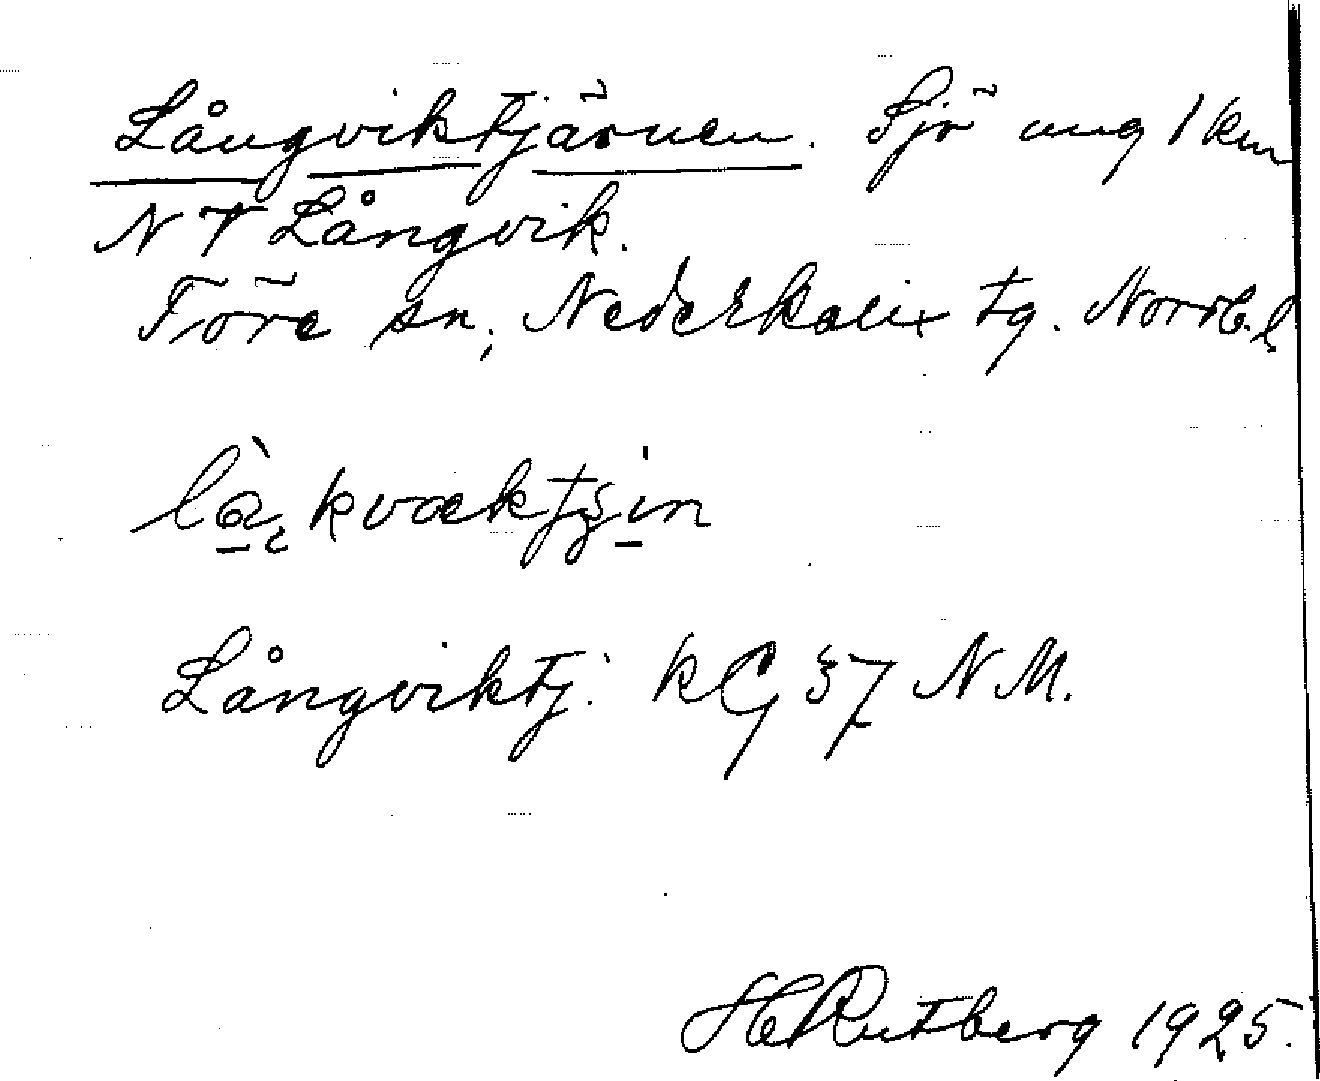 Långviktjärnen. Sjö ung 1 km
N t Långvik.
Töre sn, Nederkalix tg. Norrb. l
Långviktj. kG 37 N M.
H Rutberg 1925.